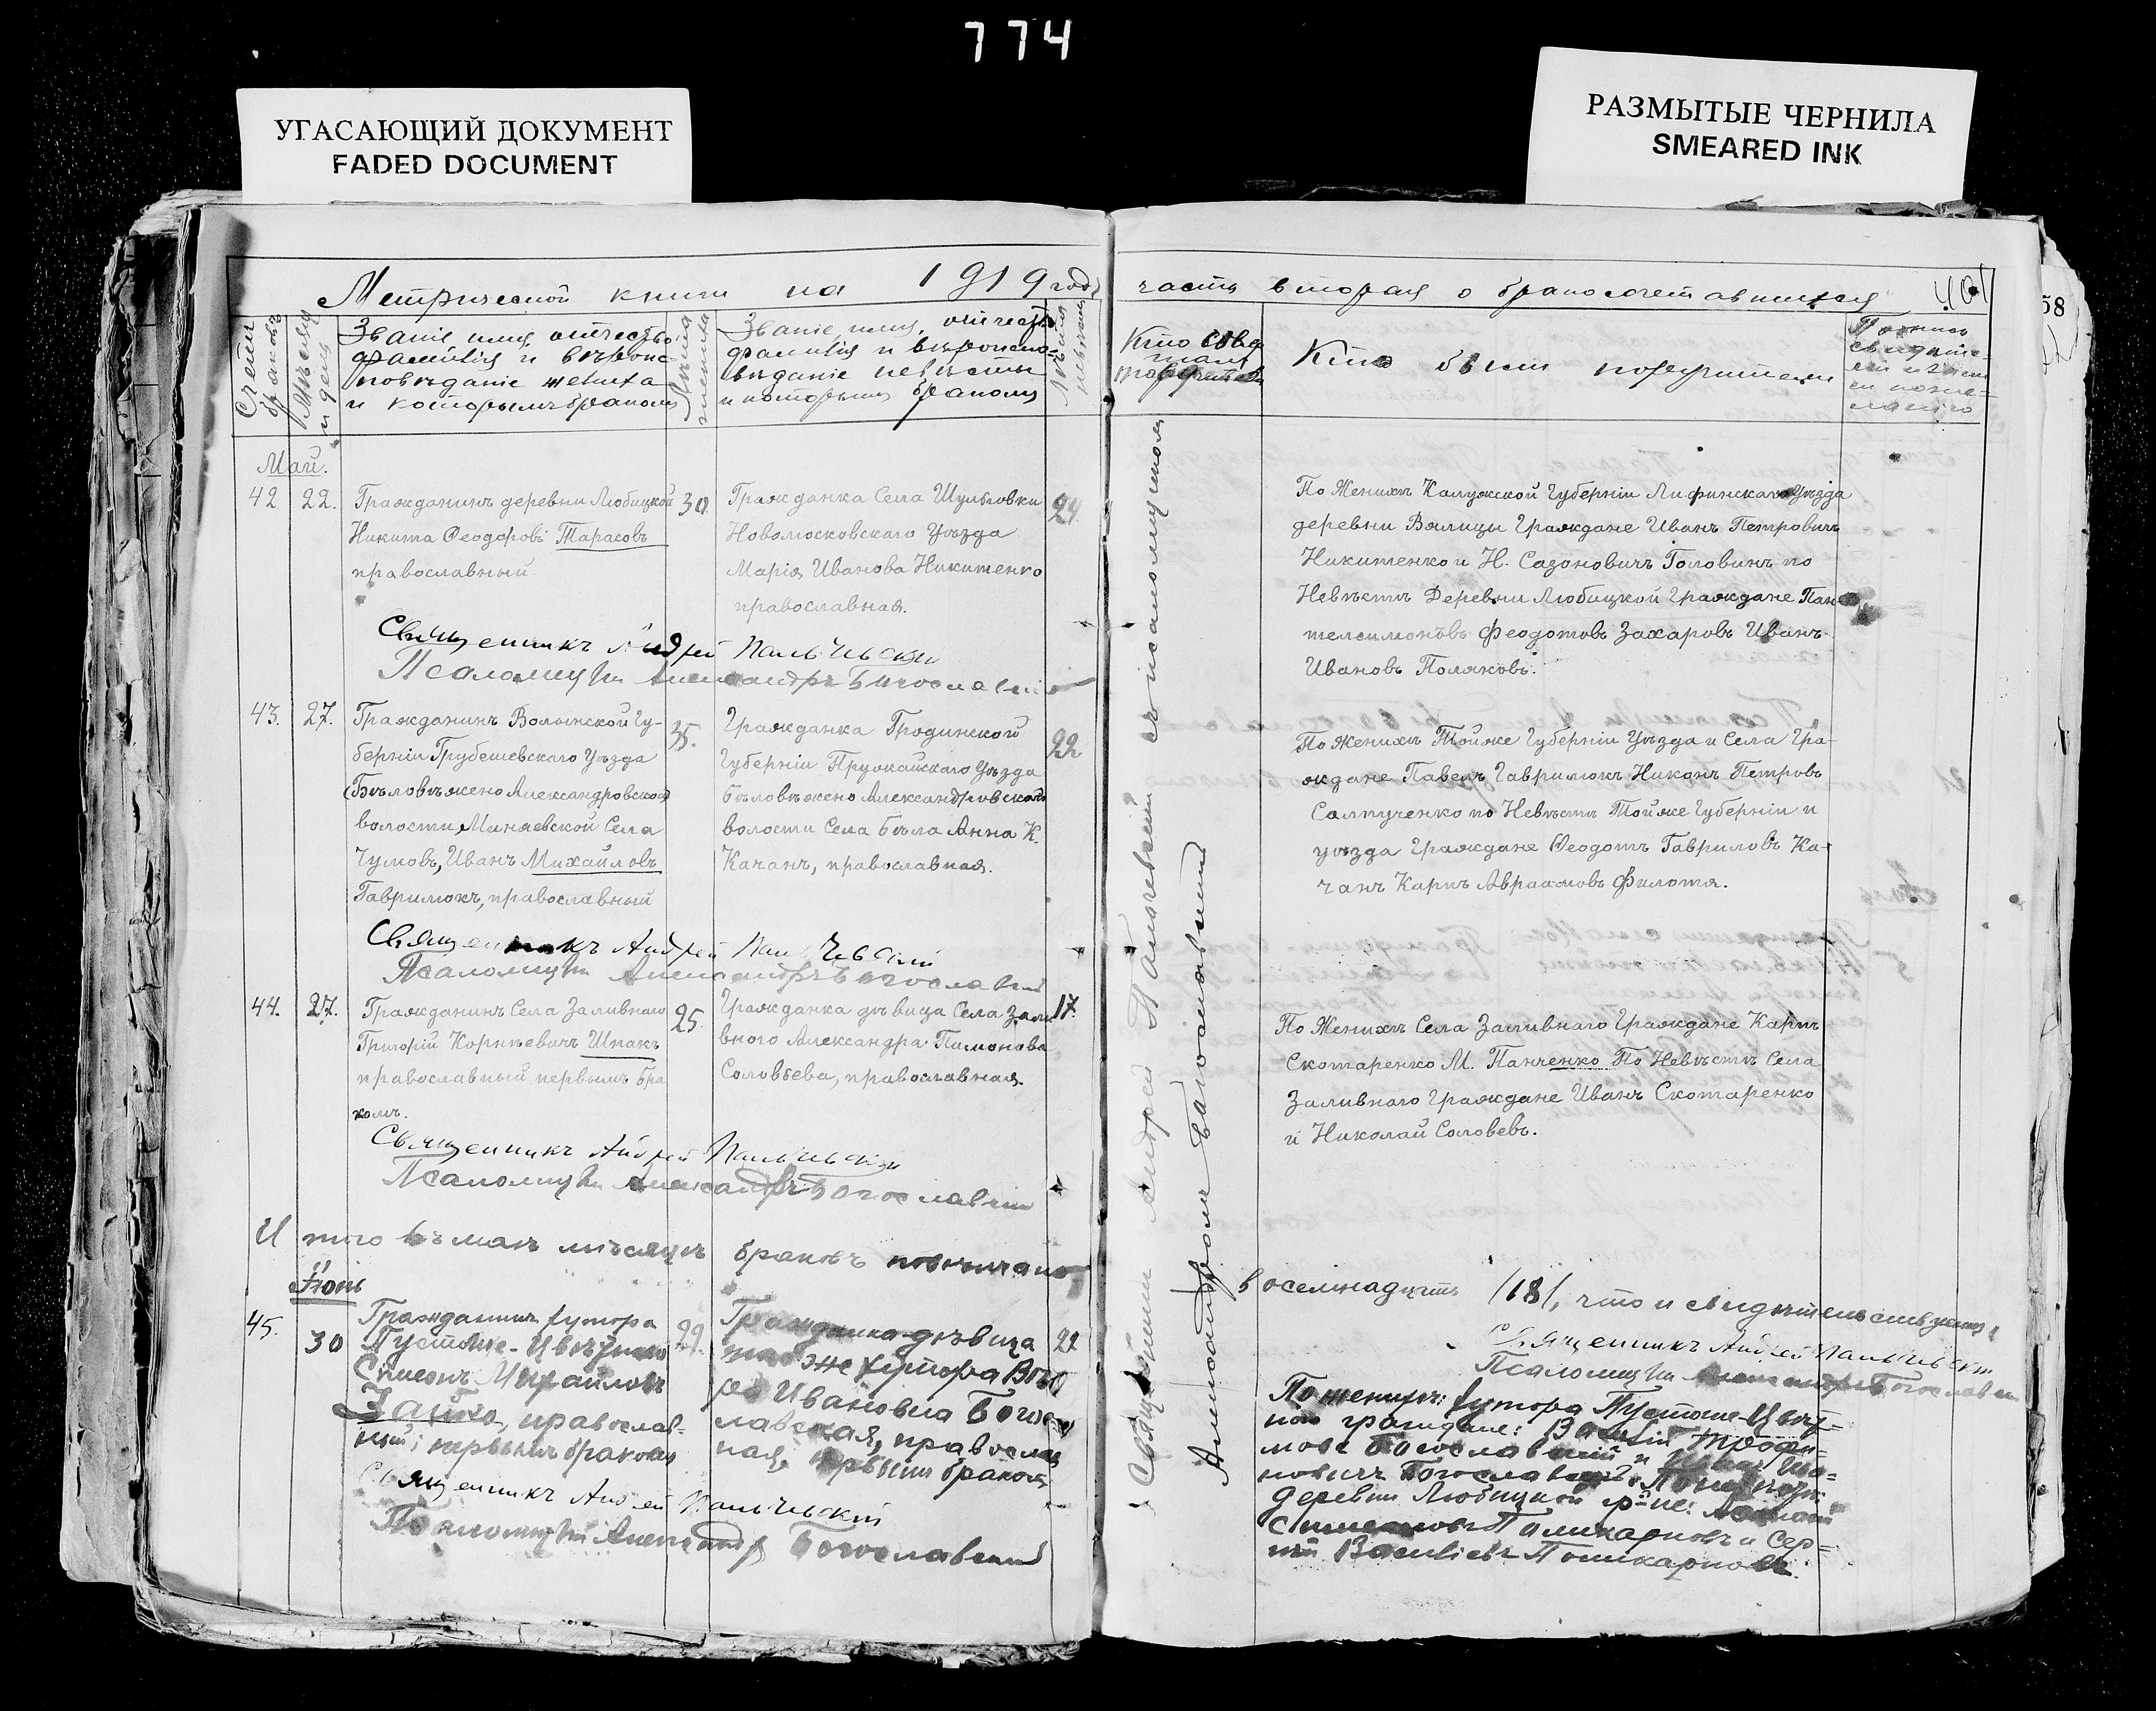 774
УГАСАЮЩИЙ ДОКУМЕНТ
FADED DOCUMENT
РАЗМЫТЫЕ ЧЕРНИЛА
SMEARED INK
58
Метрической книги на 1919 годъ
часть вторая о бракосочетавшихся
401
Счетъ браковъ
Мѣсяцъ и день
Званіе имя, отчество
фамилія и вѣроис
повѣданіе жениха
и которымъ бракомъ
Лѣта жениха
Званіе, имя, отчество
фамилія и вѣроиспо-
вѣданіе невѣсты
и которымъ бракомъ
Лѣта невѣсты
Кто совер
таинст
Кто были поручители
Подпись
свидѣте-
лей
по же-
ланію
Май.
42 22.
Гражданинъ деревни Любицкой
Никита Феодоровъ Тарасовъ
православный
30
Гражданка Села Шульговки
Новомосковскаго Уѣзда
Марія Иванова Никитенко
православная.
24
По Женихѣ Калужской Губерніи Уѣзда
деревни Вялицы Граждане Иванъ Петровичъ
Никитенко и Н. Сазоновичъ Головинъ по
Невѣстѣ Деревни Любицкой Граждане Пан-
телеимонъвъ Феодотовъ Захаровъ Иванъ
Ивановъ Поляковъ.
Священникъ Андрей
Псаломщикъ Александръ Богославскій
43. 27.
Гражданинъ Волынской Гу-
берніи Грубешевскаго Уѣзда
(Бѣловѣжено Александровской
волости, Миняевской Села
Чумовъ, Иванъ Михайловъ
Гаврилюкъ, православный
35.
Гражданка Гродинской
Губерніи Пружайскаго Уѣзда
Бѣловѣжено Александровской
волости Села Бѣла Анна К.
Качанъ, православная.
22
По Женихѣ Тойже Губерніи Уѣзда и Села Гра-
ждане Павелъ Гаврилюкъ Никонъ Петровъ
Салпученко по Невѣстѣ Тойже Губерніи и
уѣзда Граждане Феодотъ Гавриловъ Ка-
чанъ Карпъ Авраамовъ Филотя.
Священникъ Андрей
Псаломщикъ Александръ Богославскій
44. 27.
Гражданинъ Села Заливнаго
Григорій Корнѣевичъ Шпакъ
православный первымъ бра
комъ.
25.
Гражданка дѣвица Села Зали
вного Александра Пимонова
Соловьева, православная.
17.
По Женихѣ Села Заливнаго Граждане Карпъ
Скотаренко М. Панченко По Невѣстѣ Села
Заливнаго Граждане Иванъ Скотаренко
и Николай Соловевъ.
Священникъ Андрей
Псаломщикъ Александръ Богославскій
Итого въ маѣ мѣсяцѣ браковъ повѣнчано
восемнадцать /18/, что и свидѣтельствуемъ
Священникъ Андрей
Псаломщикъ Александръ Богославскій
Священникъ Андрей съ псаломщикомъ
Александромъ Богославскимъ
Іюнь
45. 30
Гражданинъ хутора
Пустоше-Цвѣтнаго
Симеонъ Михайловъ
Зайко, православ-
ный; первымъ бракомъ
Гражданка-дѣвица
того же хутора Вѣ
ра Ивановна Бого
лавская, православ
ная, первымъ бракомъ
22
По женихѣ: хутора Пустоше-Цвѣт-
наго граждане: Василій Трофи-
мовъ Богославскій и Ива-
новичъ Богославскій. По невѣстѣ:
деревни Любицкой гр-не:
Поликарповъ и Сер-
гѣй Васильевъ Поликарповъ.
Священникъ Андрей
Псаломщикъ Александръ Богославскій